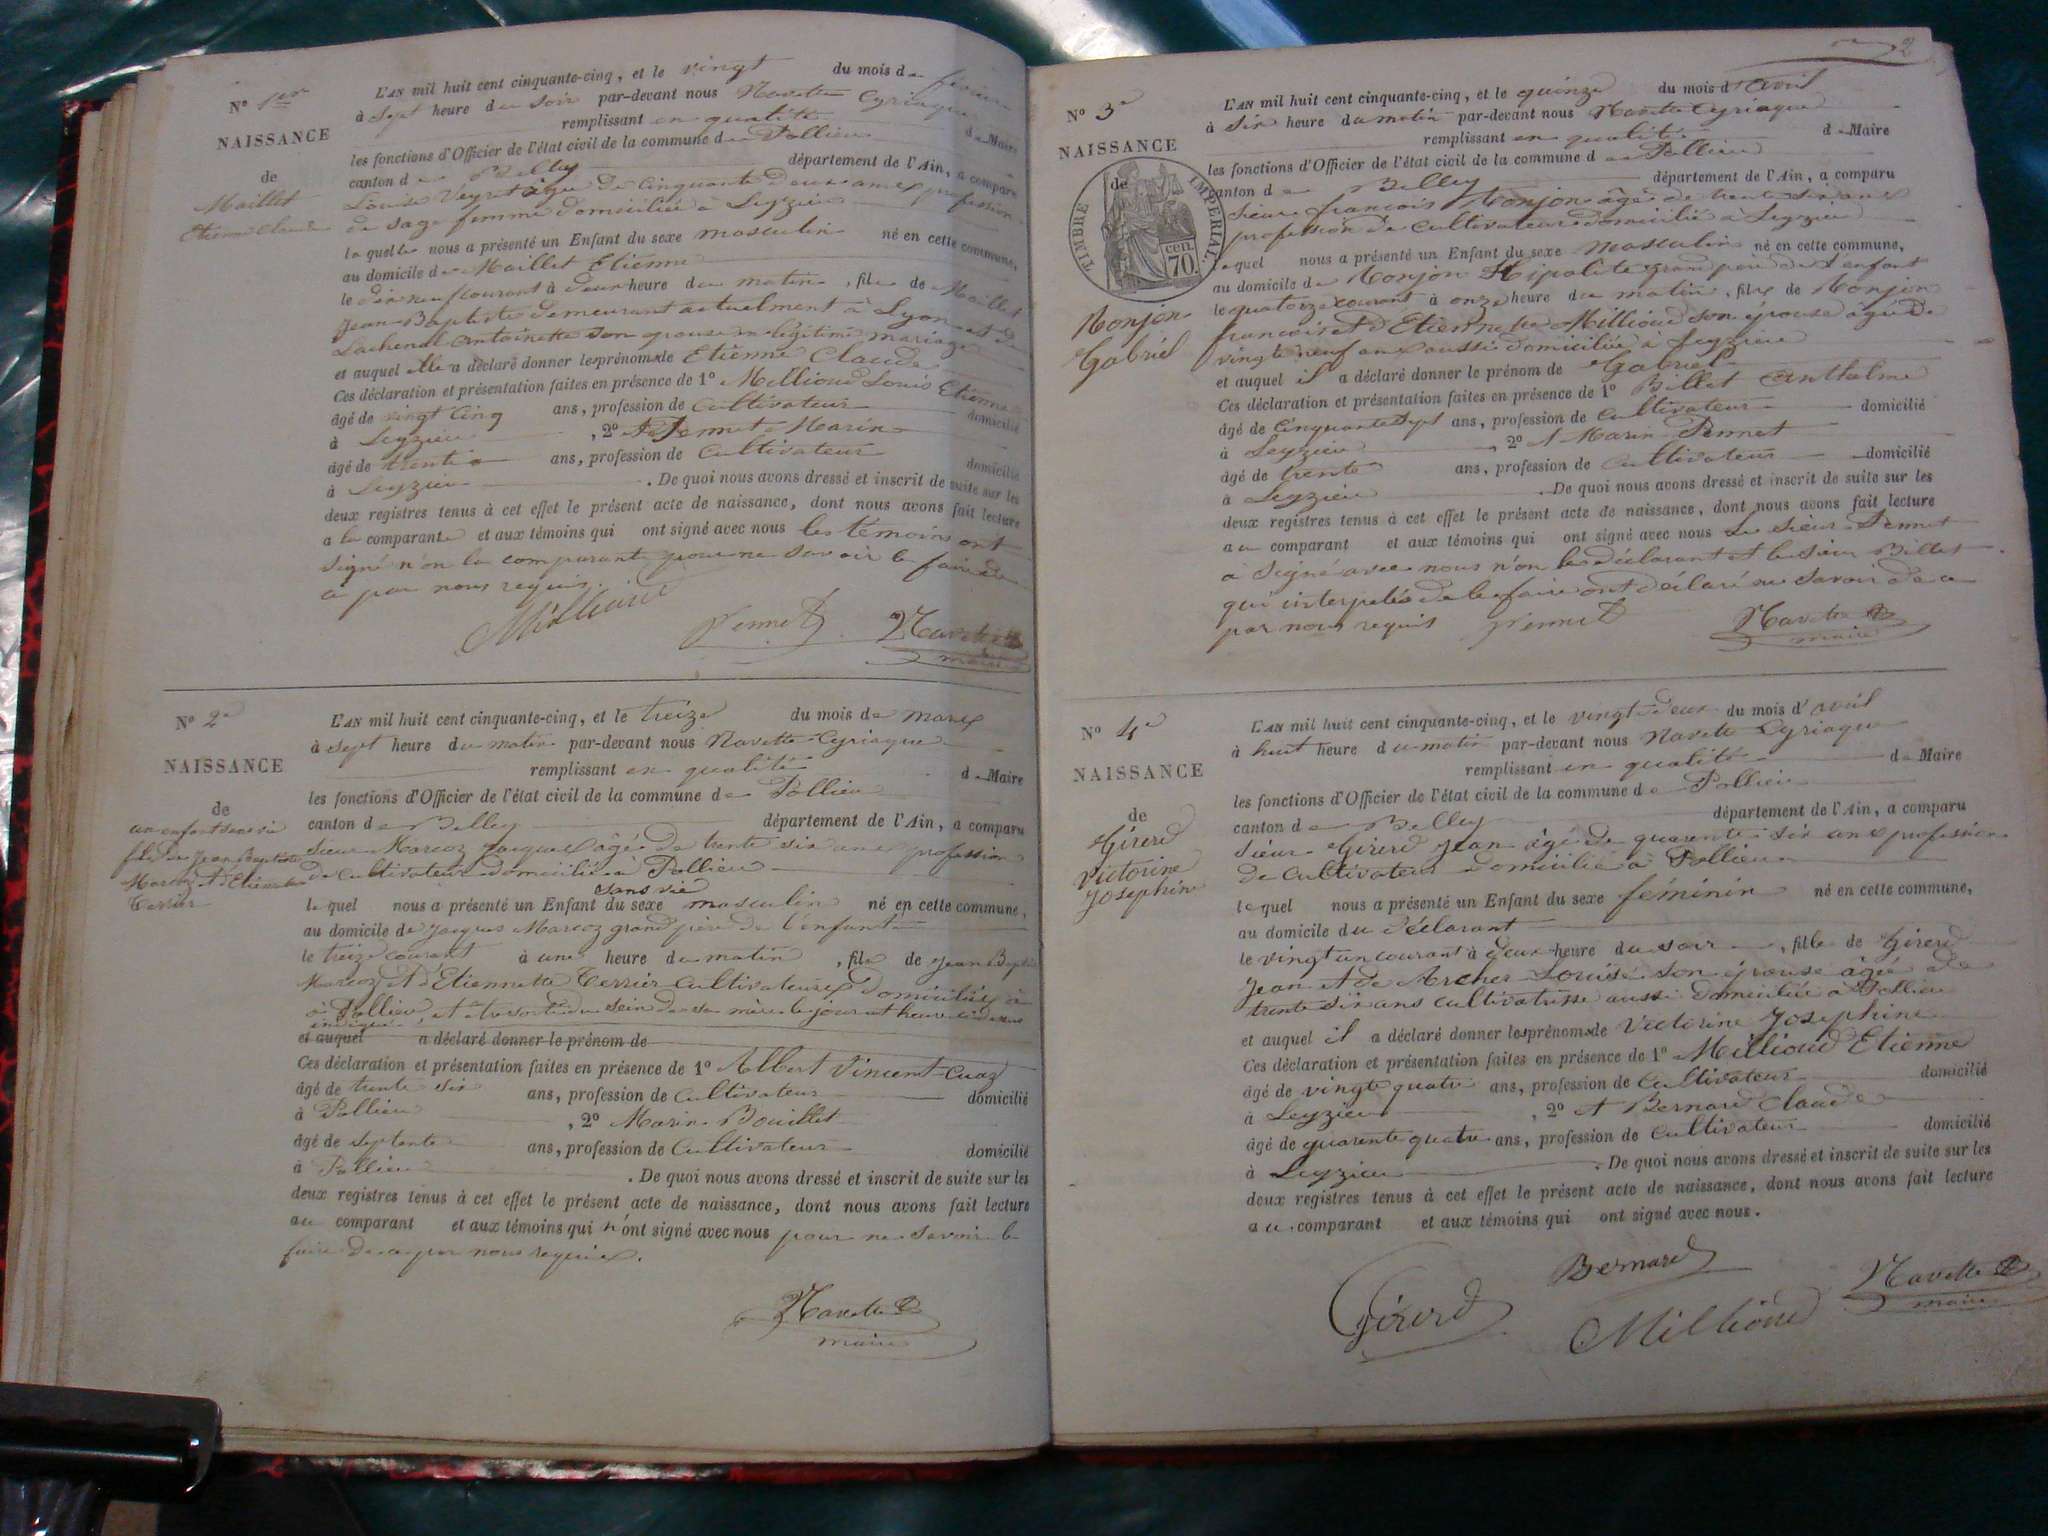 N° 1er
NAISSANCE
de
Maillet
Etienne Claude
L'AN mil huit cent cinquante-cinq, et le vingt du mois de février
à sept heure du soir par-devant nous Navette Cyriaque
remplissant en qualité de Maire
les fonctions d'Officier de l'état civil de la commune de Pollieu
canton de Belley département de l'Ain, a comparu
Louise Veyret âgée de cinquante deux ans profession
de sage femme domiciliée à Leyzieu
laquelle nous a présenté un Enfant du sexe masculin né en cette commune,
au domicile de Maillet Etienne
le dix neuf courant à deux heure du matin, fils de Maillet
Jean-Baptiste demeurant actuellement à Lyon et de
Antoinette son épouse en légitime mariage
et auquel elle a déclaré donner les prénoms de Etienne Claude
Ces déclaration et présentation faites en présence de 1° Millioud Louis Etienne
âgé de vingt cinq ans, profession de cultivateur domicilié
à Leyzieu, 2° Pennet Marin
âgé de trente ans, profession de cultivateur domicilié
à Leyzieu. De quoi nous avons dressé et inscrit de suite sur les
deux registres tenus à cet effet le présent acte de naissance, dont nous avons fait lecture
a la comparante et aux témoins qui ont signé avec nous les témoins ont
signé n'on la comparante pour ne savoir le faire de
ce par nous requis.
Millioud Pennet Navette
maire
N° 2e
NAISSANCE
de
un enfant sans vie
fils de Jean Baptiste
Marcoz et d'Etiennette
Terrier
L'AN mil huit cent cinquante-cinq, et le treize du mois de mars
à sept heure du matin par-devant nous Navette Cyriaque
remplissant en qualité de Maire
les fonctions d'Officier de l'état civil de la commune de Pollieu
canton de Belley département de l'Ain, a comparu
sieur Marcoz Jacques âgé de trente six ans profession
de cultivateur domicilié à Pollieu
sans vie
lequel nous a présenté un Enfant du sexe masculin né en cette commune,
au domicile de Jacques Marcoz grand père de l'enfant
le treize courant à une heure du matin, fils de Jean Baptiste
Marcoz et d'Etiennette Terrier cultivateurs domiciliés à
à Pollieu, et être sorti du sein de sa mère le jour et heure ci dessus
indiqués
et auquel a déclaré donner le prénom de
Ces déclaration et présentation faites en présence de 1° Albert Vincent-Cuaz
âgé de trente six ans, profession de cultivateur domicilié
à Pollieu, 2° Marin Bouillet
âgé de septante ans, profession de cultivateur domicilié
à Pollieu. De quoi nous avons dressé et inscrit de suite sur les
deux registres tenus à cet effet le présent acte de naissance, dont nous avons fait lecture
au comparant et aux témoins qui n'ont signé avec nous pour ne savoir le
faire de ce par nous requis.
Navette
maire
2
N° 3e
NAISSANCE
de
TIMBRE IMPERIAL
70 cen.
Monjon
Gabriel
L'AN mil huit cent cinquante-cinq, et le quinze du mois d'avril
à six heure du matin par-devant nous Navette Cyriaque
remplissant en qualité de Maire
les fonctions d'Officier de l'état civil de la commune de Pollieu
canton de Belley département de l'Ain, a comparu
sieur françois Monjon âgé de trente six ans
profession de cultivateur domicilié à Leyzieu
lequel nous a présenté un Enfant du sexe masculin né en cette commune,
au domicile de Monjon Hipolite grand père de l'enfant
le quatorze courant à onze heure du matin, fils de Monjon
françois et d'Etiennette Millioud son épouse âgée de
vingt neuf ans aussi domiciliée à Leyzieu
et auquel il a déclaré donner le prénom de Gabriel
Ces déclaration et présentation faites en présence de 1° Billet Anthelme
âgé de cinquante sept ans, profession de cultivateur domicilié
à Leyzieu, 2° et Marin Pennet
âgé de trente ans, profession de cultivateur domicilié
à Leyzieu. De quoi nous avons dressé et inscrit de suite sur les
deux registres tenus à cet effet le présent acte de naissance, dont nous avons fait lecture
au comparant et aux témoins qui ont signé avec nous Le sieur Pennet
a signé avec nous n'on le déclarant et le sieur Billet
qui interpelés de le faire ont déclaré ne savoir de ce
par nous requis Pennet Navette
maire
N° 4e
NAISSANCE
de
Girerd
Victorine
Josephine
L'AN mil huit cent cinquante-cinq, et le vingt deux du mois d'avril
à huit heure du matin par-devant nous Navette Cyriaque
remplissant en qualité de Maire
les fonctions d'Officier de l'état civil de la commune de Pollieu
canton de Belley département de l'Ain, a comparu
sieur Girerd Jean âgé de quarante six ans profession
de cultivateur domicilié à Pollieu
lequel nous a présenté un Enfant du sexe féminin né en cette commune,
au domicile du déclarant
le vingt un courant à deux heure du soir, fille de Girerd
Jean et de Archer Louise son épouse âgée de
trente six ans cultivatrisse aussi domiciliée à Pollieu
et auquel il a déclaré donner les prénoms de Victorine Josephine
Ces déclaration et présentation faites en présence de 1° Millioud Etienne
âgé de vingt quatre ans, profession de cultivateur domicilié
à Leyzieu, 2° et Bernard Claude
âgé de quarente quatre ans, profession de cultivateur domicilié
à Leyzieu. De quoi nous avons dressé et inscrit de suite sur les
deux registres tenus à cet effet le présent acte de naissance, dont nous avons fait lecture
au comparant et aux témoins qui ont signé avec nous.
Girerd Bernard Navette
Millioud maire